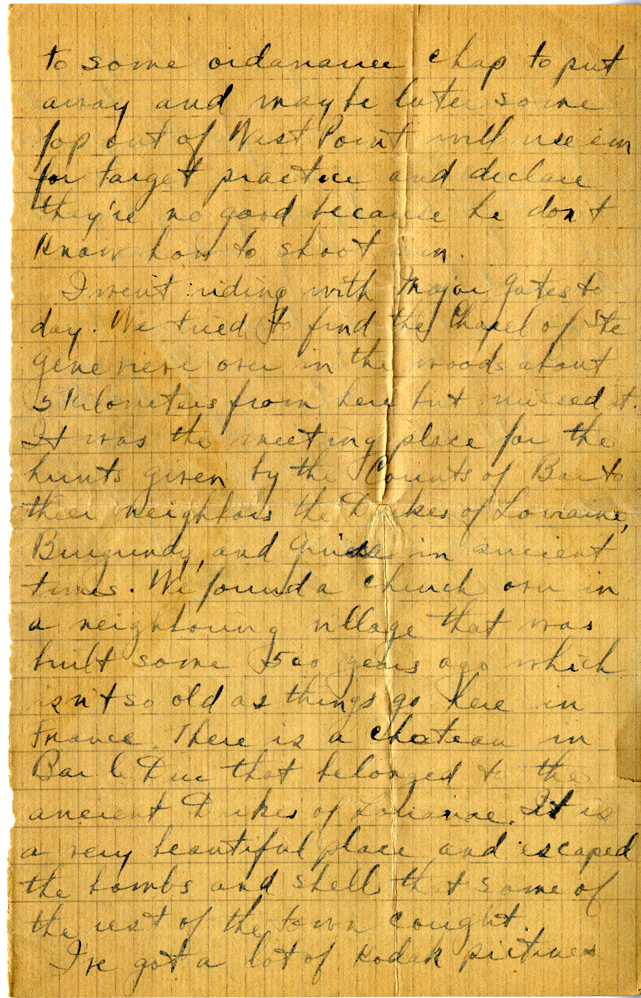 to some ordanance chap to put
away and maybe later some
fop out of West Point will use em
for target practice and declare
they're no good because he don't
know how to shoot em.
I went riding with Major Gates to
day. We tried to find the Chapel of Ste
Genevieve over in the woods about
5 kilometers from here but missed it.
It was the meeting place for the
hunts given by the Counts of Bar to
their neighbors the Dukes of Lorraine,
Burgundy, and Guise in ancient
times. We found a church over in
a neighboring village that was
built some 500 years ago which
isn't so old as things go here in
France. There is a chateau in
Bar le Duc that belonged to the
ancient Dukes of Lorainne. It is
a very beautiful place and escaped
the bombs and shells that some of
the rest of the town caught.
I've got a lot of Kodak pictures